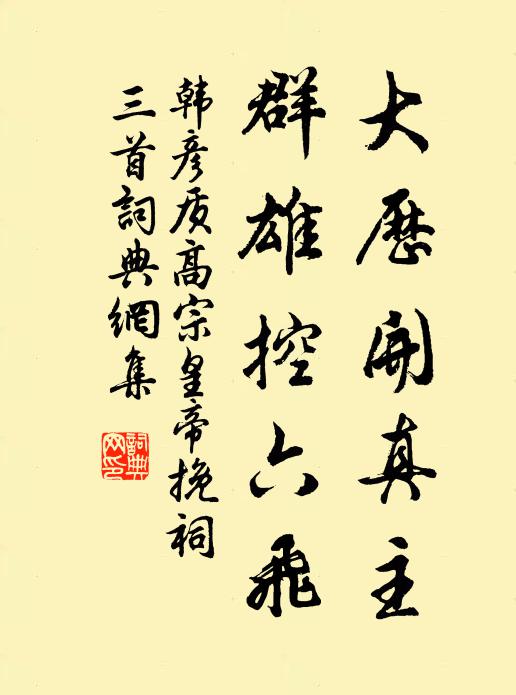 大歷開真主
群雄控六飛
韩彦质高宗皇帝挽祠
三首詞典網集
詞典网印